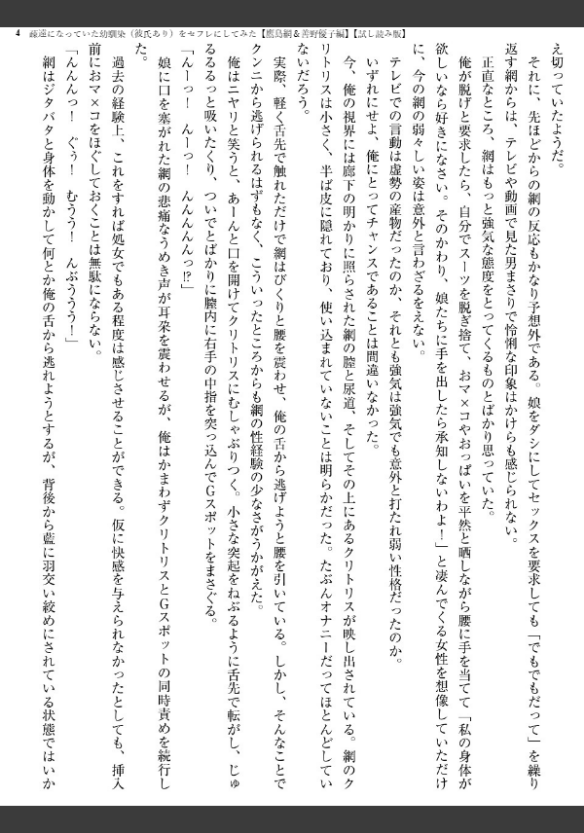 4　疎遠になっていた幼馴染（彼氏あり）をセフレにしてみた【鷹島網＆善野優子編】【試し読み版】
え切っていたようだ。
それに、先ほどからの網の反応もかなり予想外である。娘をダシにしてセックスを要求しても「でもでもだって」を繰り
返す網からは、テレビや動画で見た男まさりで怜悧な印象はかけらも感じられない。
正直なところ、網はもっと強気な態度をとってくるものとばかり思っていた。
俺が脱げと要求したら、自分でスーツを脱ぎ捨て、おマ×コやおっぱいを平然と晒しながら腰に手を当てて「私の身体が
欲しいなら好きになさい。そのかわり、娘たちに手を出したら承知しないわよ！」と凄んでくる女性を想像していただけ
に、今の網の弱々しい姿は意外と言わざるをえない。
テレビでの言動は虚勢の産物だったのか、それとも強気は強気でも意外と打たれ弱い性格だったのか。
いずれにせよ、俺にとってチャンスであることは間違いなかった。
今、俺の視界には廊下の明かりに照らされた網の膣と尿道、そしてその上にあるクリトリスが映し出されている。網のク
リトリスは小さく、半ば皮に隠れており、使い込まれていないことは明らかだった。たぶんオナニーだってほとんどしてい
ないだろう。
実際、軽く舌先で触れただけで網はびくりと腰を震わせ、俺の舌から逃げようと腰を引いている。しかし、そんなことで
クンニから逃げられるはずもなく、こういったところからも網の性経験の少なさがうかがえた。
俺はニヤリと笑うと、あーんと口を開けてクリトリスにむしゃぶりつく。小さな突起をねぶるように舌先で転がし、じゅ
るるるっと吸いたくり、ついでとばかりに膣内に右手の中指を突っ込んでGスポットをまさぐる。
「んーっ！　んーっ！　んんんんんっ!?」
娘に口を塞がれた網の悲痛なうめき声が耳朶を震わせるが、俺はかまわずクリトリスとGスポットの同時責めを続行し
た。
過去の経験上、これをすれば処女でもある程度は感じさせることができる。仮に快感を与えられなかったとしても、挿入
前におマ×コをほぐしておくことは無駄にならない。
「んんんっ！　ぐぅ！　むうう！　んぶううう！」
網はジタバタと身体を動かして何とか俺の舌から逃れようとするが、背後から藍に羽交い絞めにされている状態ではいか